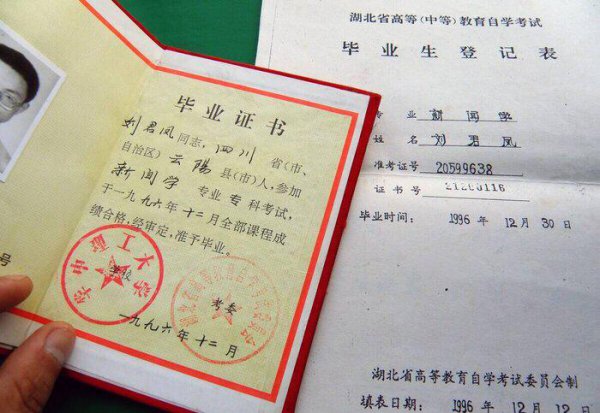 毕业证书
刘君凤同志，四川 省(市、
自治区) 云陽 县(市)人，参加
新闻学 专业 专 科考试，
于一九九六年十二月全部课程成
绩合格，经审定，准予毕业。
华中理工大学
学校
考委
一九九六年十二月
号
湖北省高等(中等)教育自学考试
毕业生登记表
专业 新闻学
姓名 刘君凤
准考证号 20599638
证书号 21200116
毕业时间： 1996 年 12 月 30 日
湖北省高等教育自学考试委员会制
填表日期： 1996 年 12 月 12 日